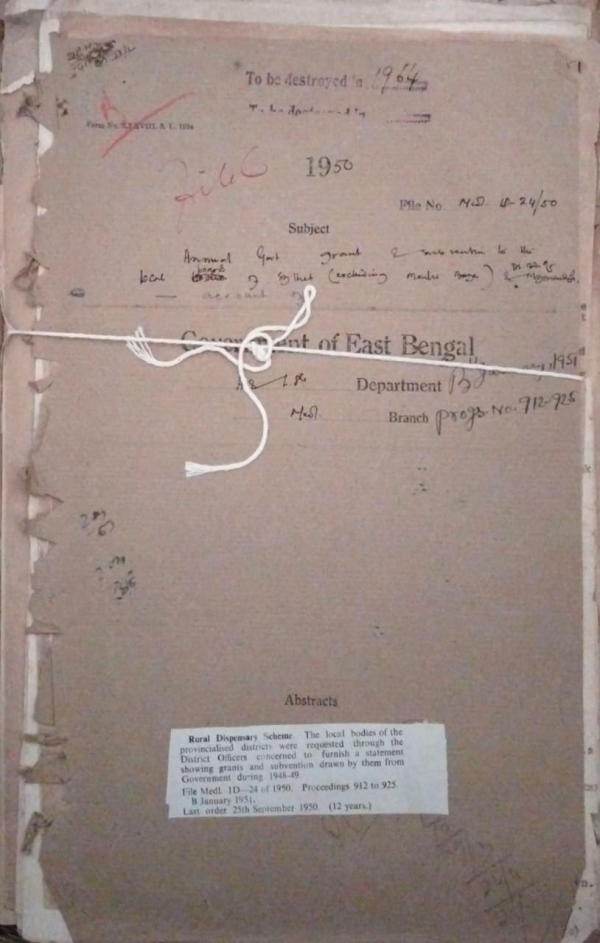 To be destroyed in 1964
Form No. XXXVIII. B. L. 1934
File C
1950
File No. Md. ID-24/50
Subject
Annual Govt grant & subvention to the
local boards of Sylhet (excluding Moulvi Bazar) &
account of
Government of East Bengal
Department B January, 1951
Medl. Branch progs. No. 912-925
Abstracts
Rural Dispensary Scheme. The local bodies of the
provincialised districts were requested through the
District Officers concerned to furnish a statement
showing grants and subvention drawn by them from
Government during 1948-49.
File Medl. 1D—24 of 1950. Proceedings 912 to 925
B January 1951.
Last order 25th September 1950. (12 years.)